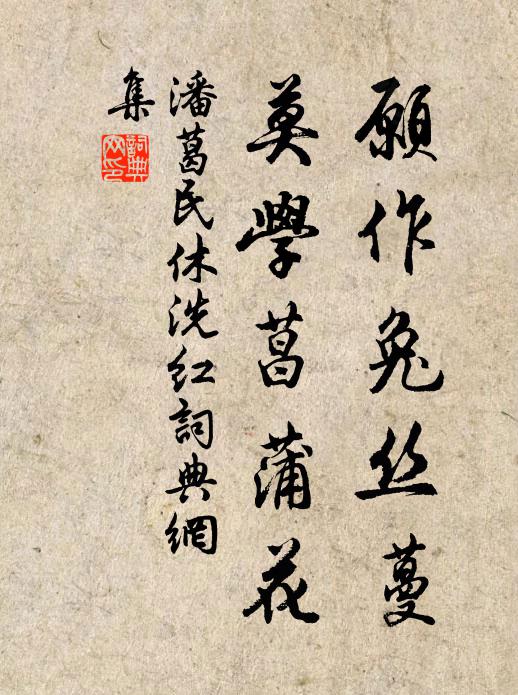 願作兔丝蔓
莫學菖蒲花
潘葛民休洗红詞典網
集
詞典
网印